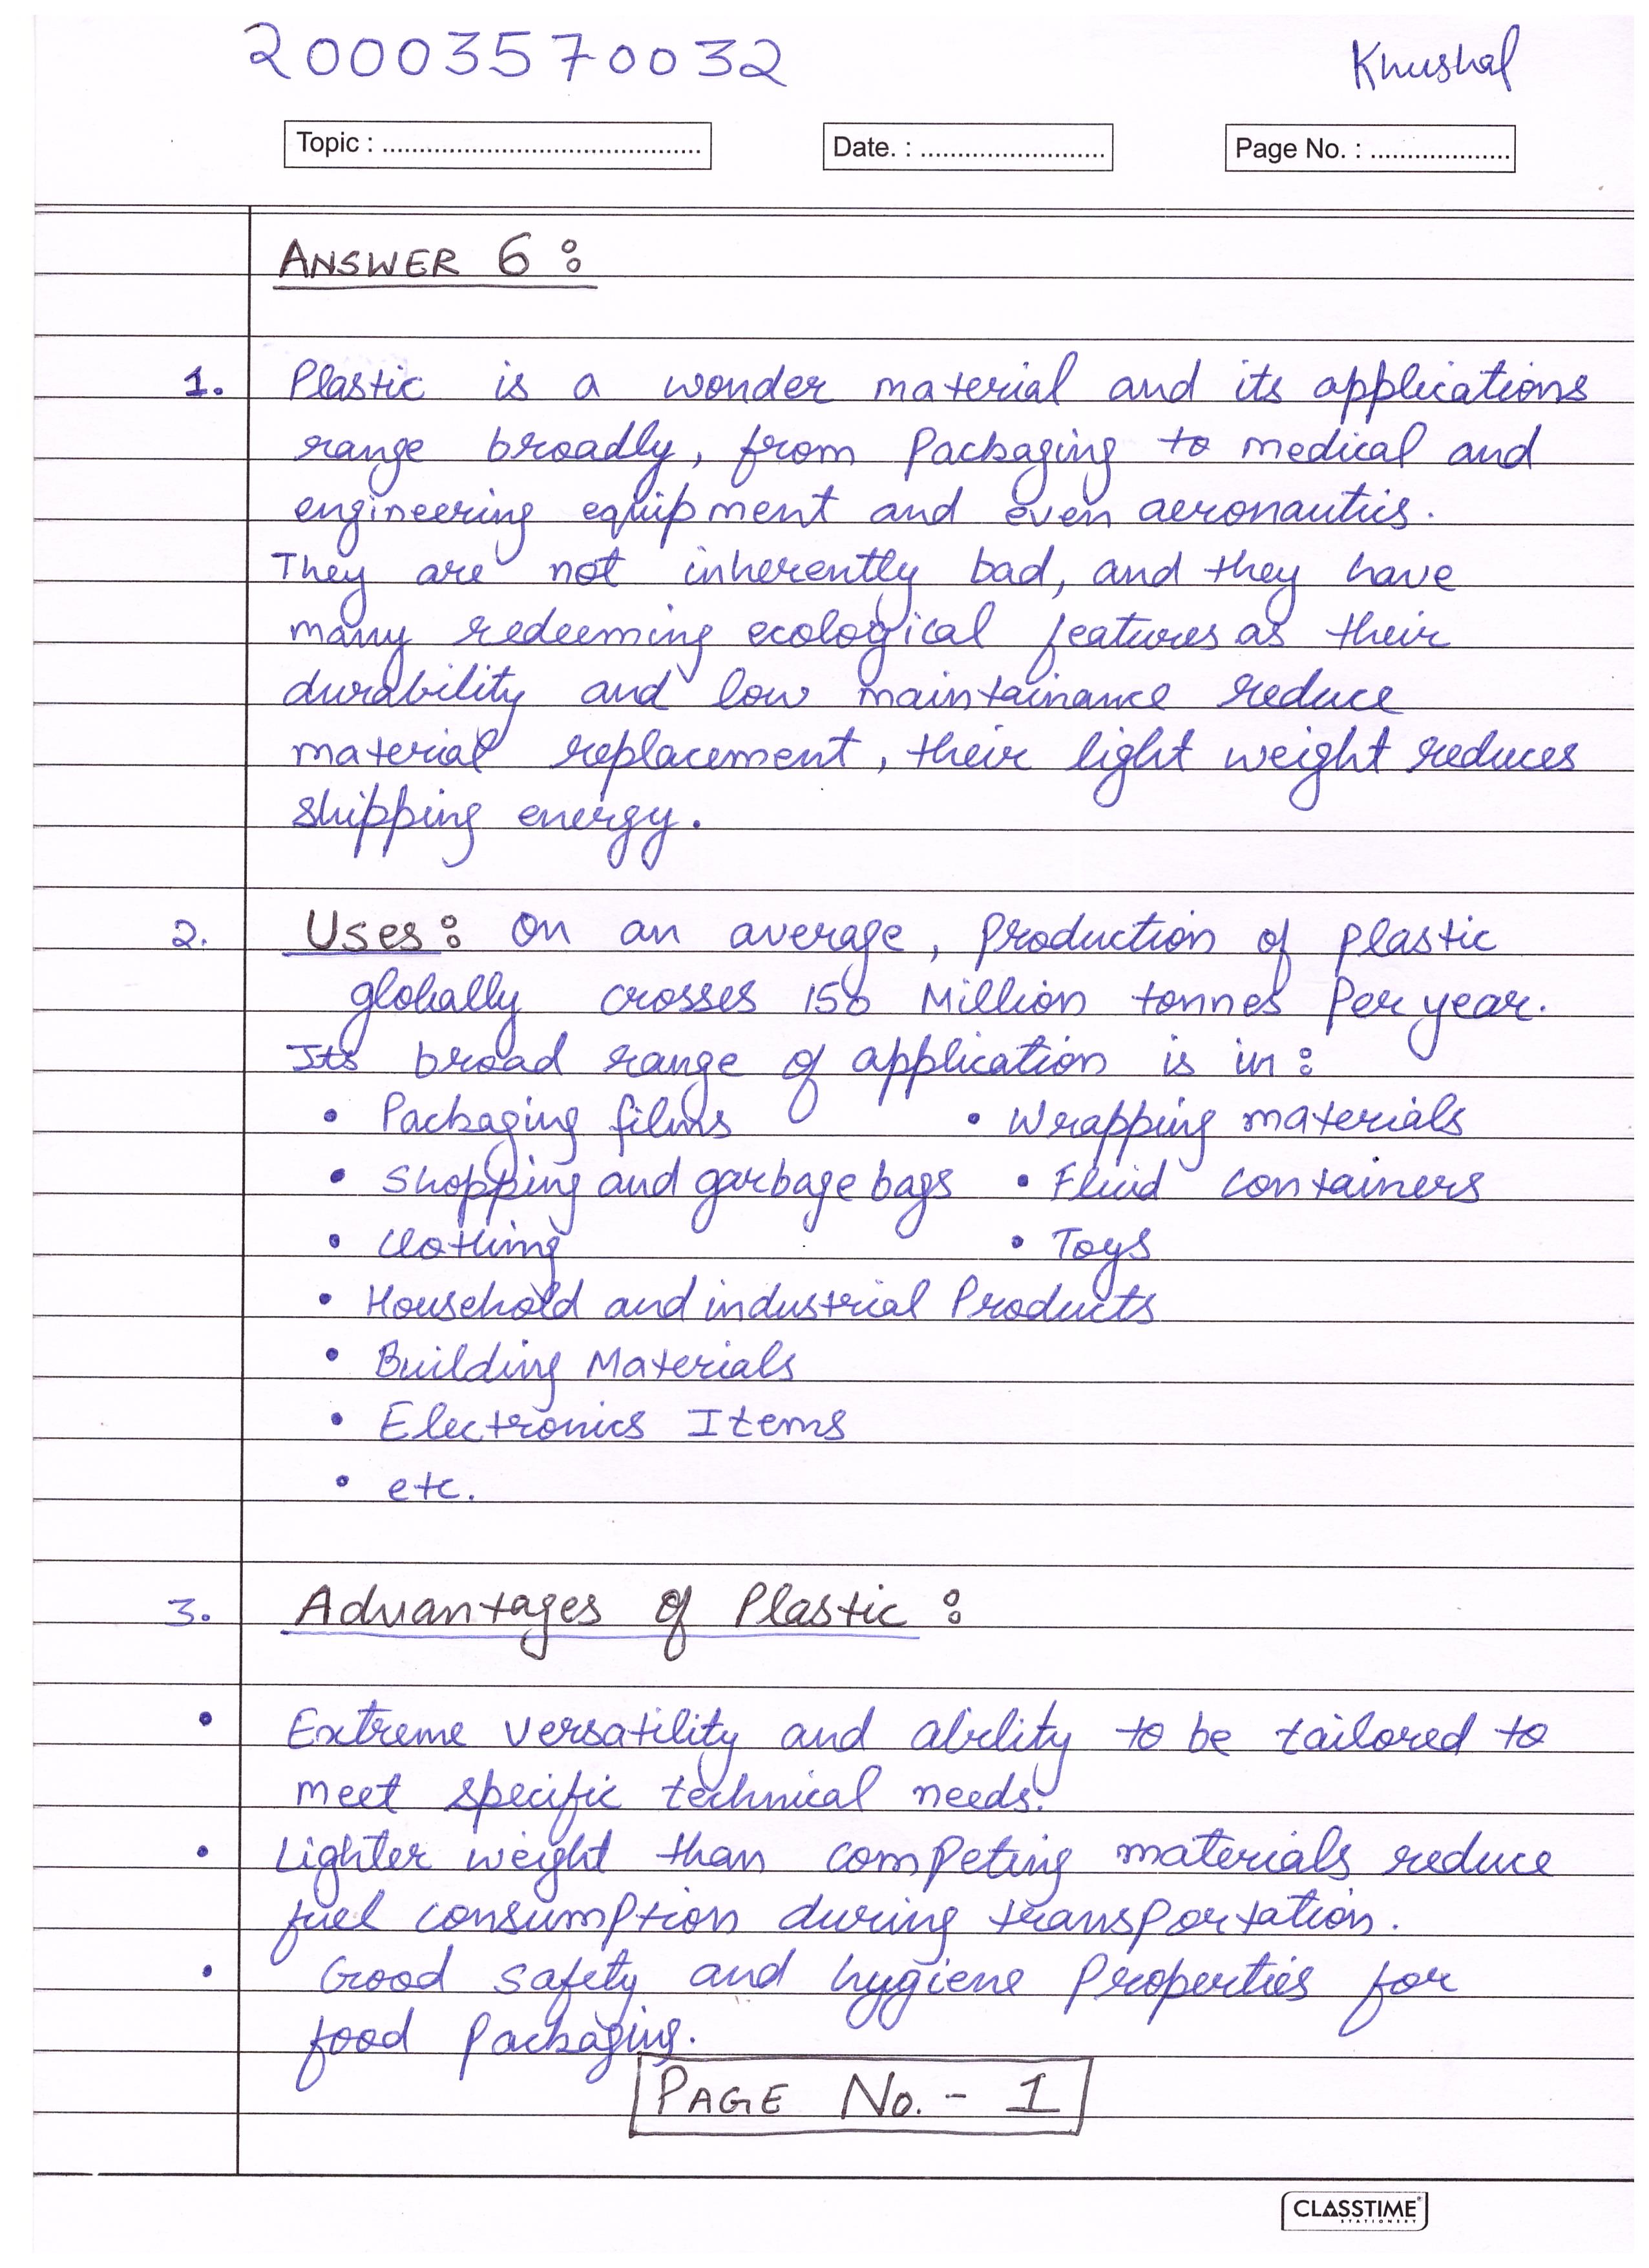 20003570032 Khushal
Topic : ............................................ Date. : ......................... Page No. : ...................
ANSWER 6 :
1. Plastic is a wonder material and its applications
range broadly, from Packaging to medical and
engineering equipment and even aeronautics.
They are not inherently bad, and they have
many redeeming ecological features as their
durability and low maintainance reduce
material replacement, their light weight reduces
shipping energy.
2. Uses: On an average, Production of plastic
globally crosses 150 Million tonnes Per year.
Its broad range of application is in :
• Packaging films • Wrapping materials
• Shopping and garbage bags • Fluid containers
• Clothing • Toys
• Household and industrial Products
• Building Materials
• Electronics Items
• etc.
3. Advantages of Plastic :
• Extreme versatility and ability to be tailored to
meet specific technical needs.
• Lighter weight than competing materials reduce
fuel consumption during transportation.
• Good safety and hygiene Properties for
food Packaging.
PAGE No. - 1
CLASSTIME
STATIONERY